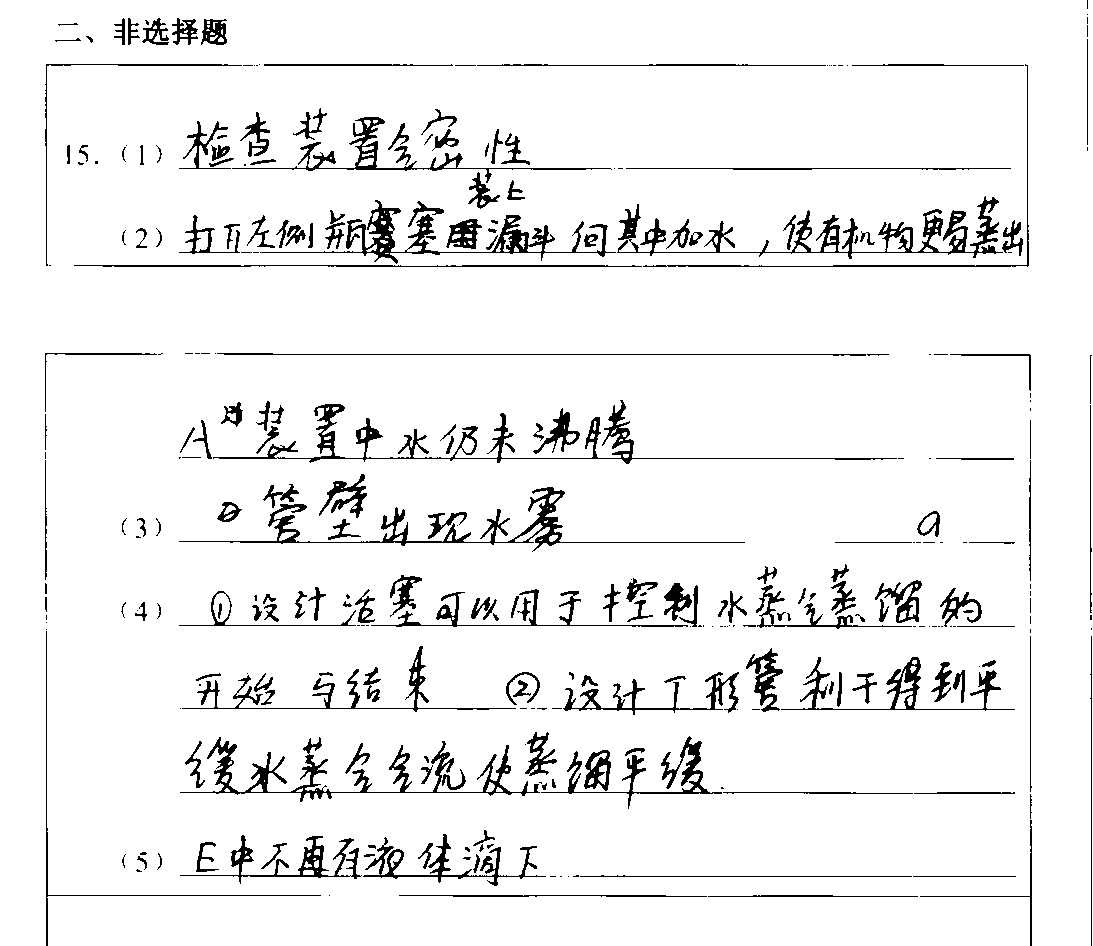 二、非选择题
15.（1）检查装置气密性
装上
（2）打开左侧瓶塞用漏斗向其中加水，使有机物更易蒸出
A装置中水仍未沸腾
（3）管壁出现水雾 a
（4）①设计活塞可以用于控制水蒸气蒸馏的
开始与结束 ②设计T形管利于得到平
缓水蒸气气流使蒸馏平缓
（5）E中不再有液体滴下